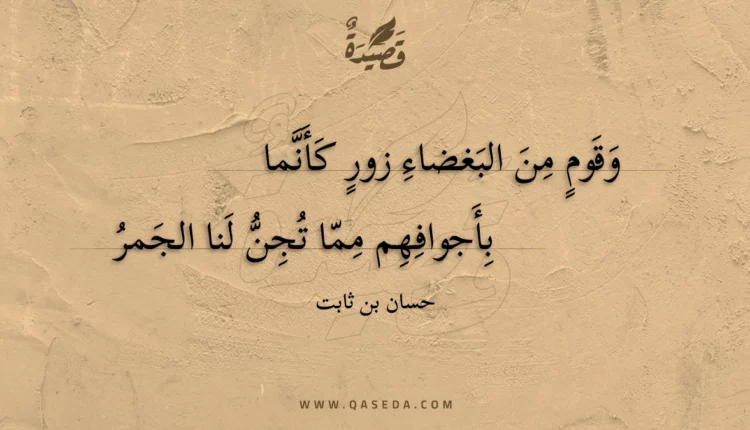 قَصِيدَةٌ
وَقَومٍ مِنَ البَغضاءِ زورٍ كَأَنَّما
بِأَجوافِهِم مِمّا تُجِنُّ لَنا الجَمرُ
حسان بن ثابت
WWW.QASEDA.COM